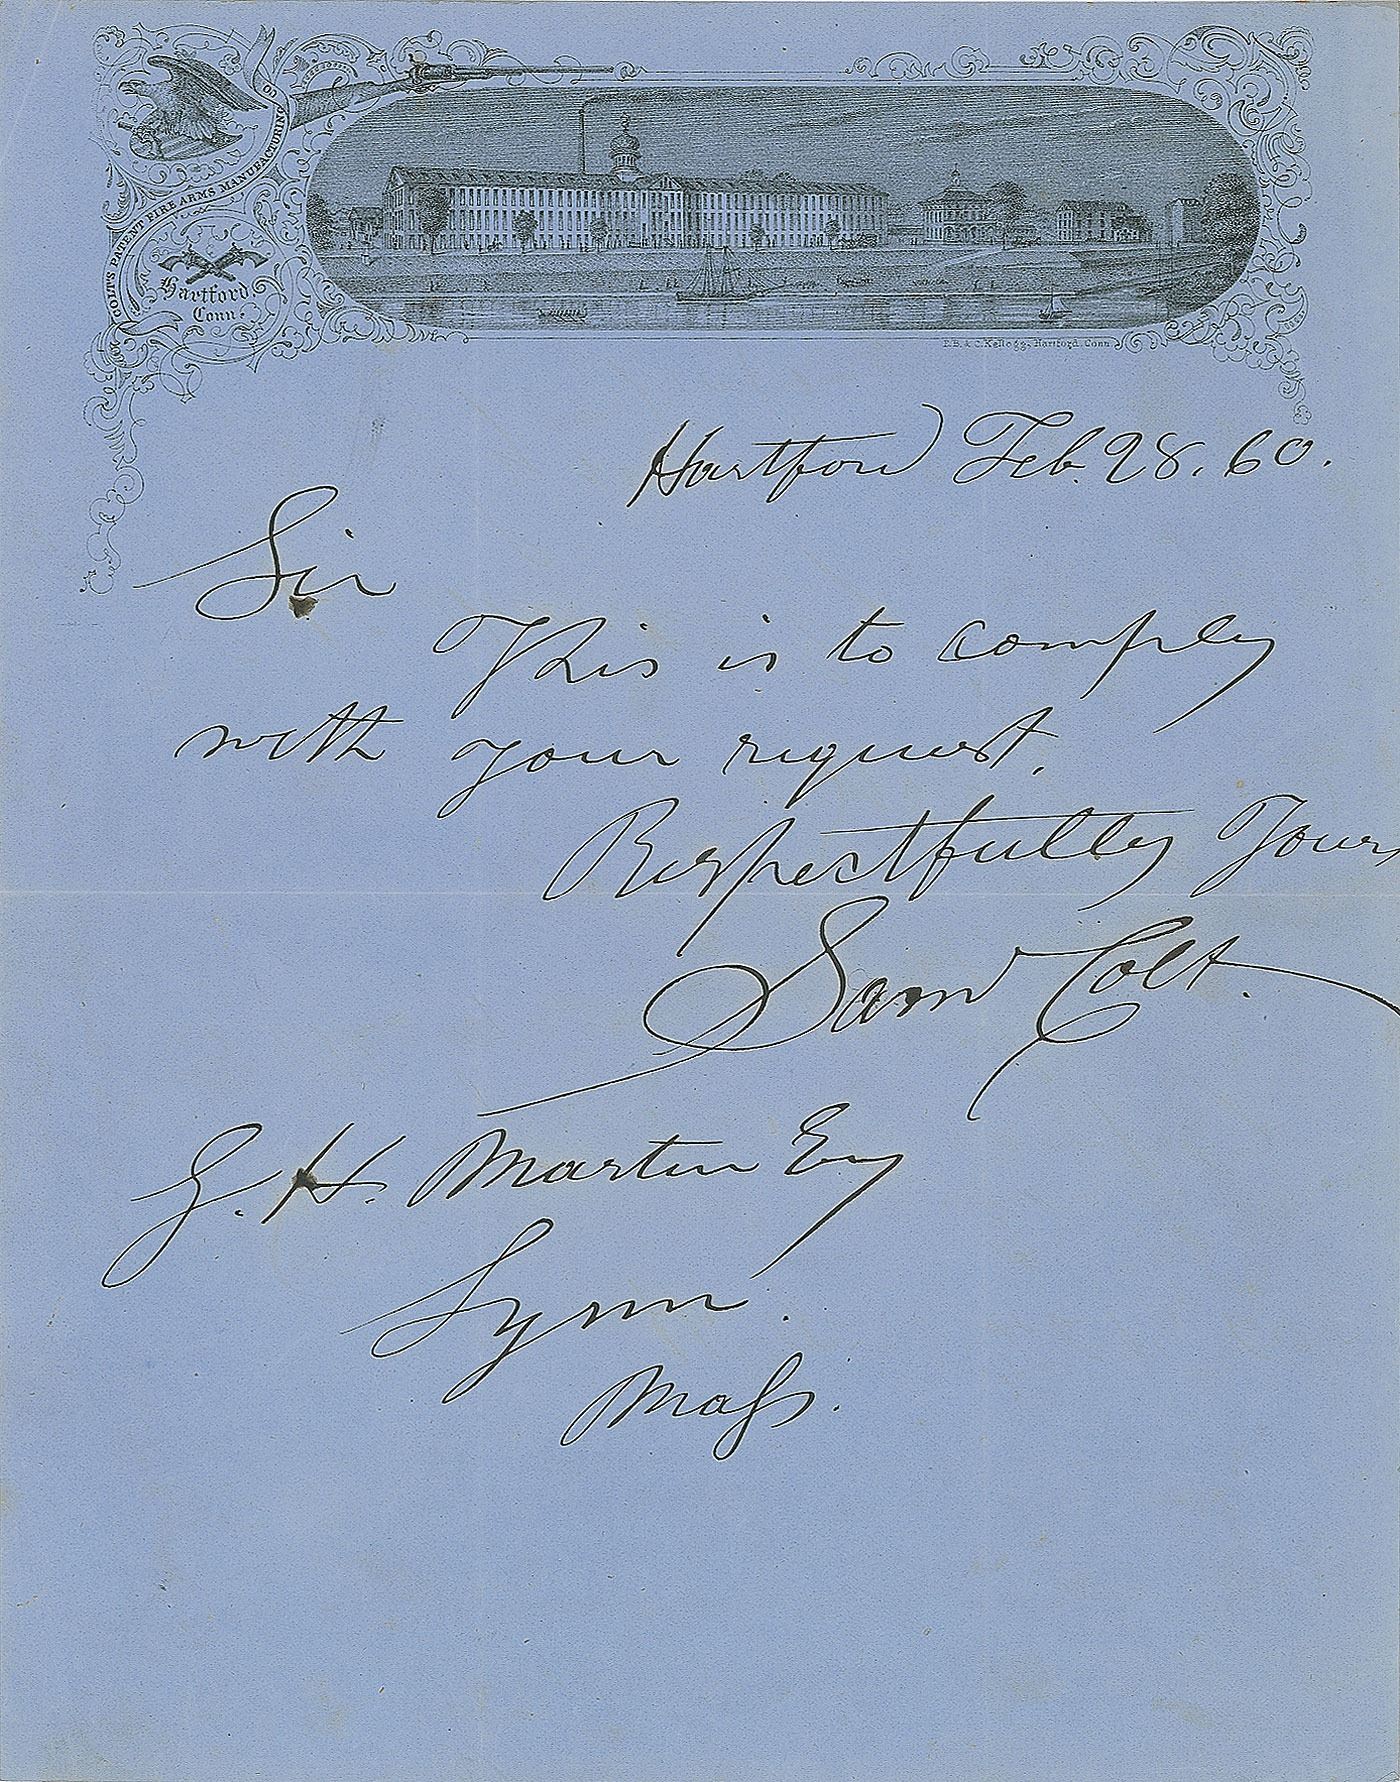 COLT'S PATENT FIRE ARMS MANUFACTURING CO.
Hartford.
Conn.
E.B. & C. Kellogg, Hartford, Conn
Hartford Feb. 28. 60.
Sir
This is to comply
with your request.
Respectfully Yours
Sam Colt.
G. H. Martin Esq
Lynn.
Mass.